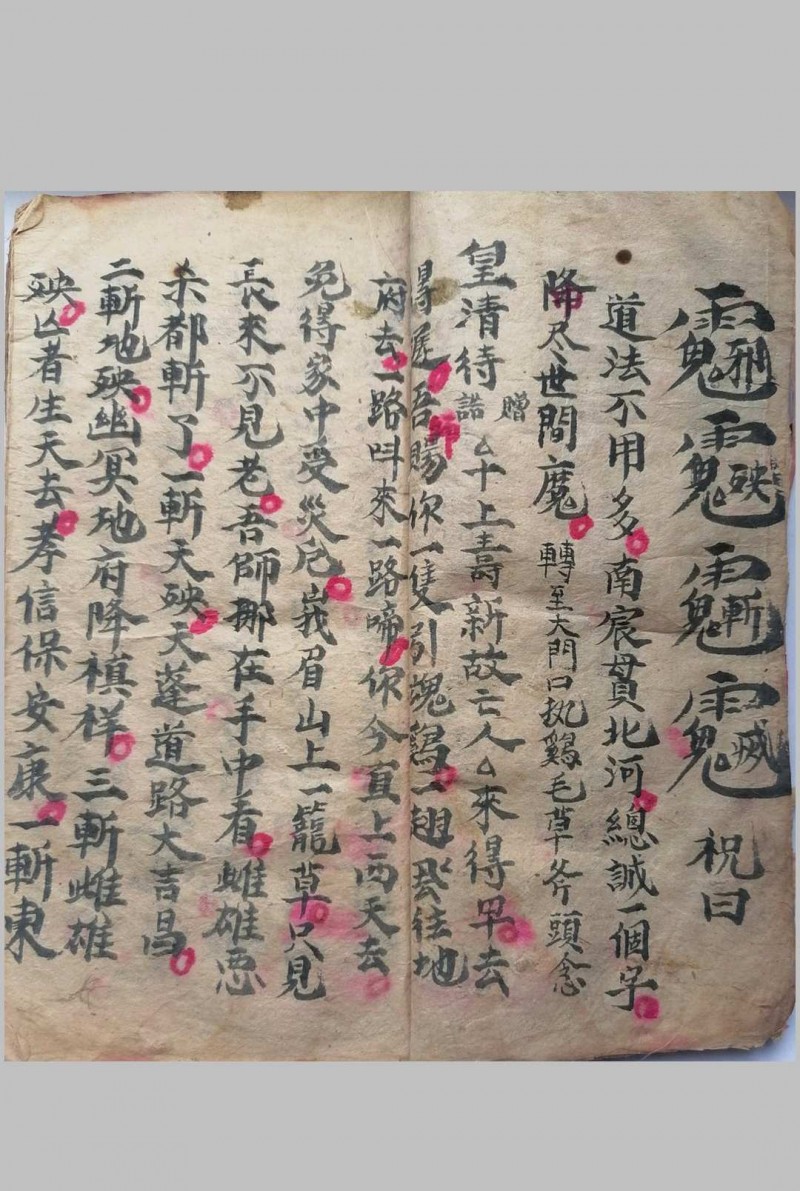 祝曰
道法不用多南宸貫北河總誠一個字
降尽世間魔轉至大門口执鷄毛草斧頭念
皇清待贈誥△十上壽新故亡人△來得早去
得遲吾師賜你一隻引魂鷄一翅飛往地
府去一路呌來一路啼你今直上西天去
免得家中受災危峩眉山上一籠草只見
長來不見老吾師挪在手中看雌雄惡
杀都斬了一斬天殃天蓬道路大吉昌
二斬地殃幽冥地府降禎祥三斬雌雄
殃亾者生天去孝信保安康一斬東